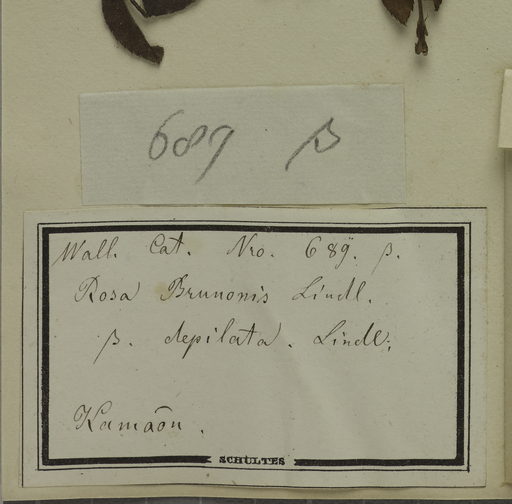 689 β
Wall. Cat. Nro. 689. β.
Rosa Brunonis Lindl.
β. depilata. Lindl.
Kamaōn.
SCHULTES